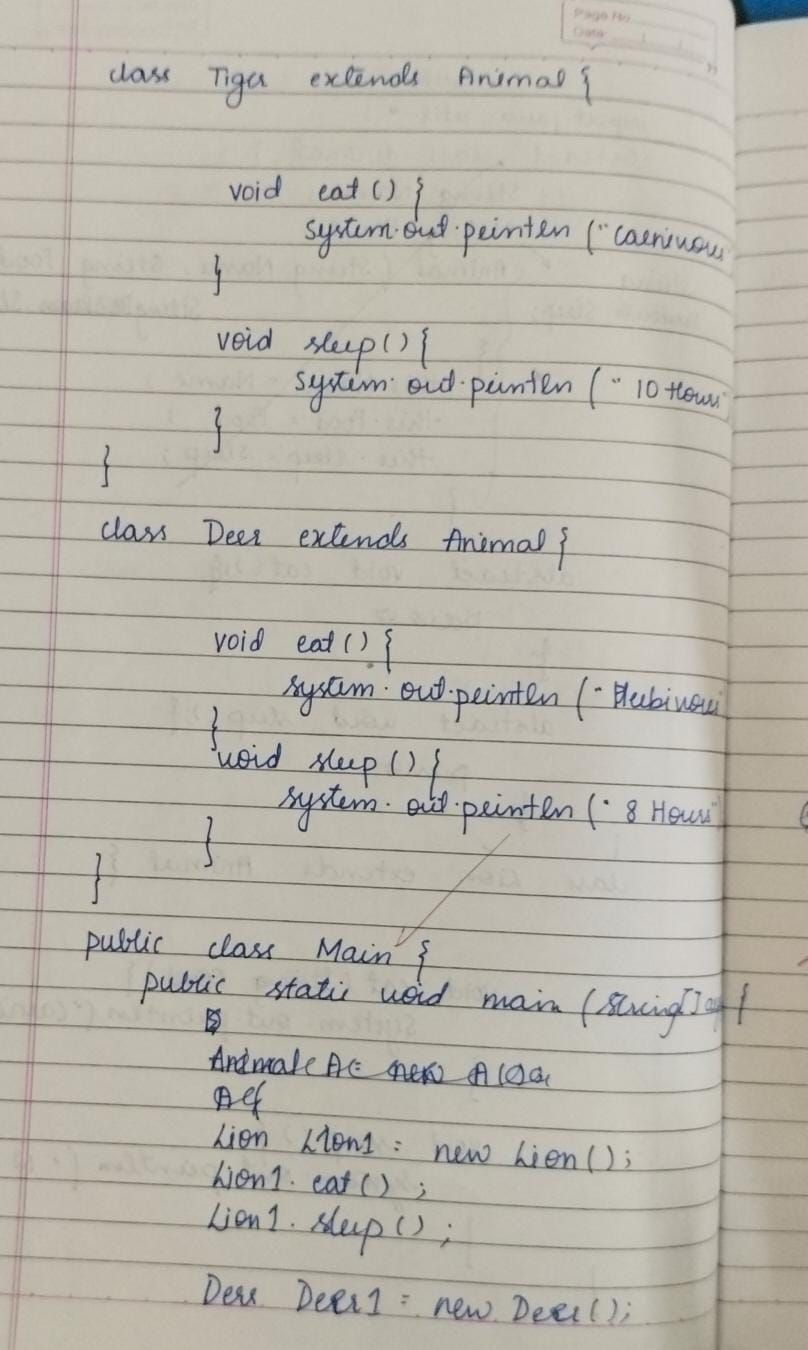 Page No
Date
class Tiger extends Animal {
void eat () {
system.out.println ("Carnivorous
}
void sleep () {
system.out.println (" 10 Hours
}
}
class Deer extends Animal {
void eat () {
system.out.println (" Herbivorous
}
void sleep () {
system.out.println (" 8 Hours"
}
}
public class Main {
public static void main (String[] {
Lion Lion1 = new Lion();
Lion1. eat () ;
Lion1. sleep () ;
Deer Deer1 = new Deer();